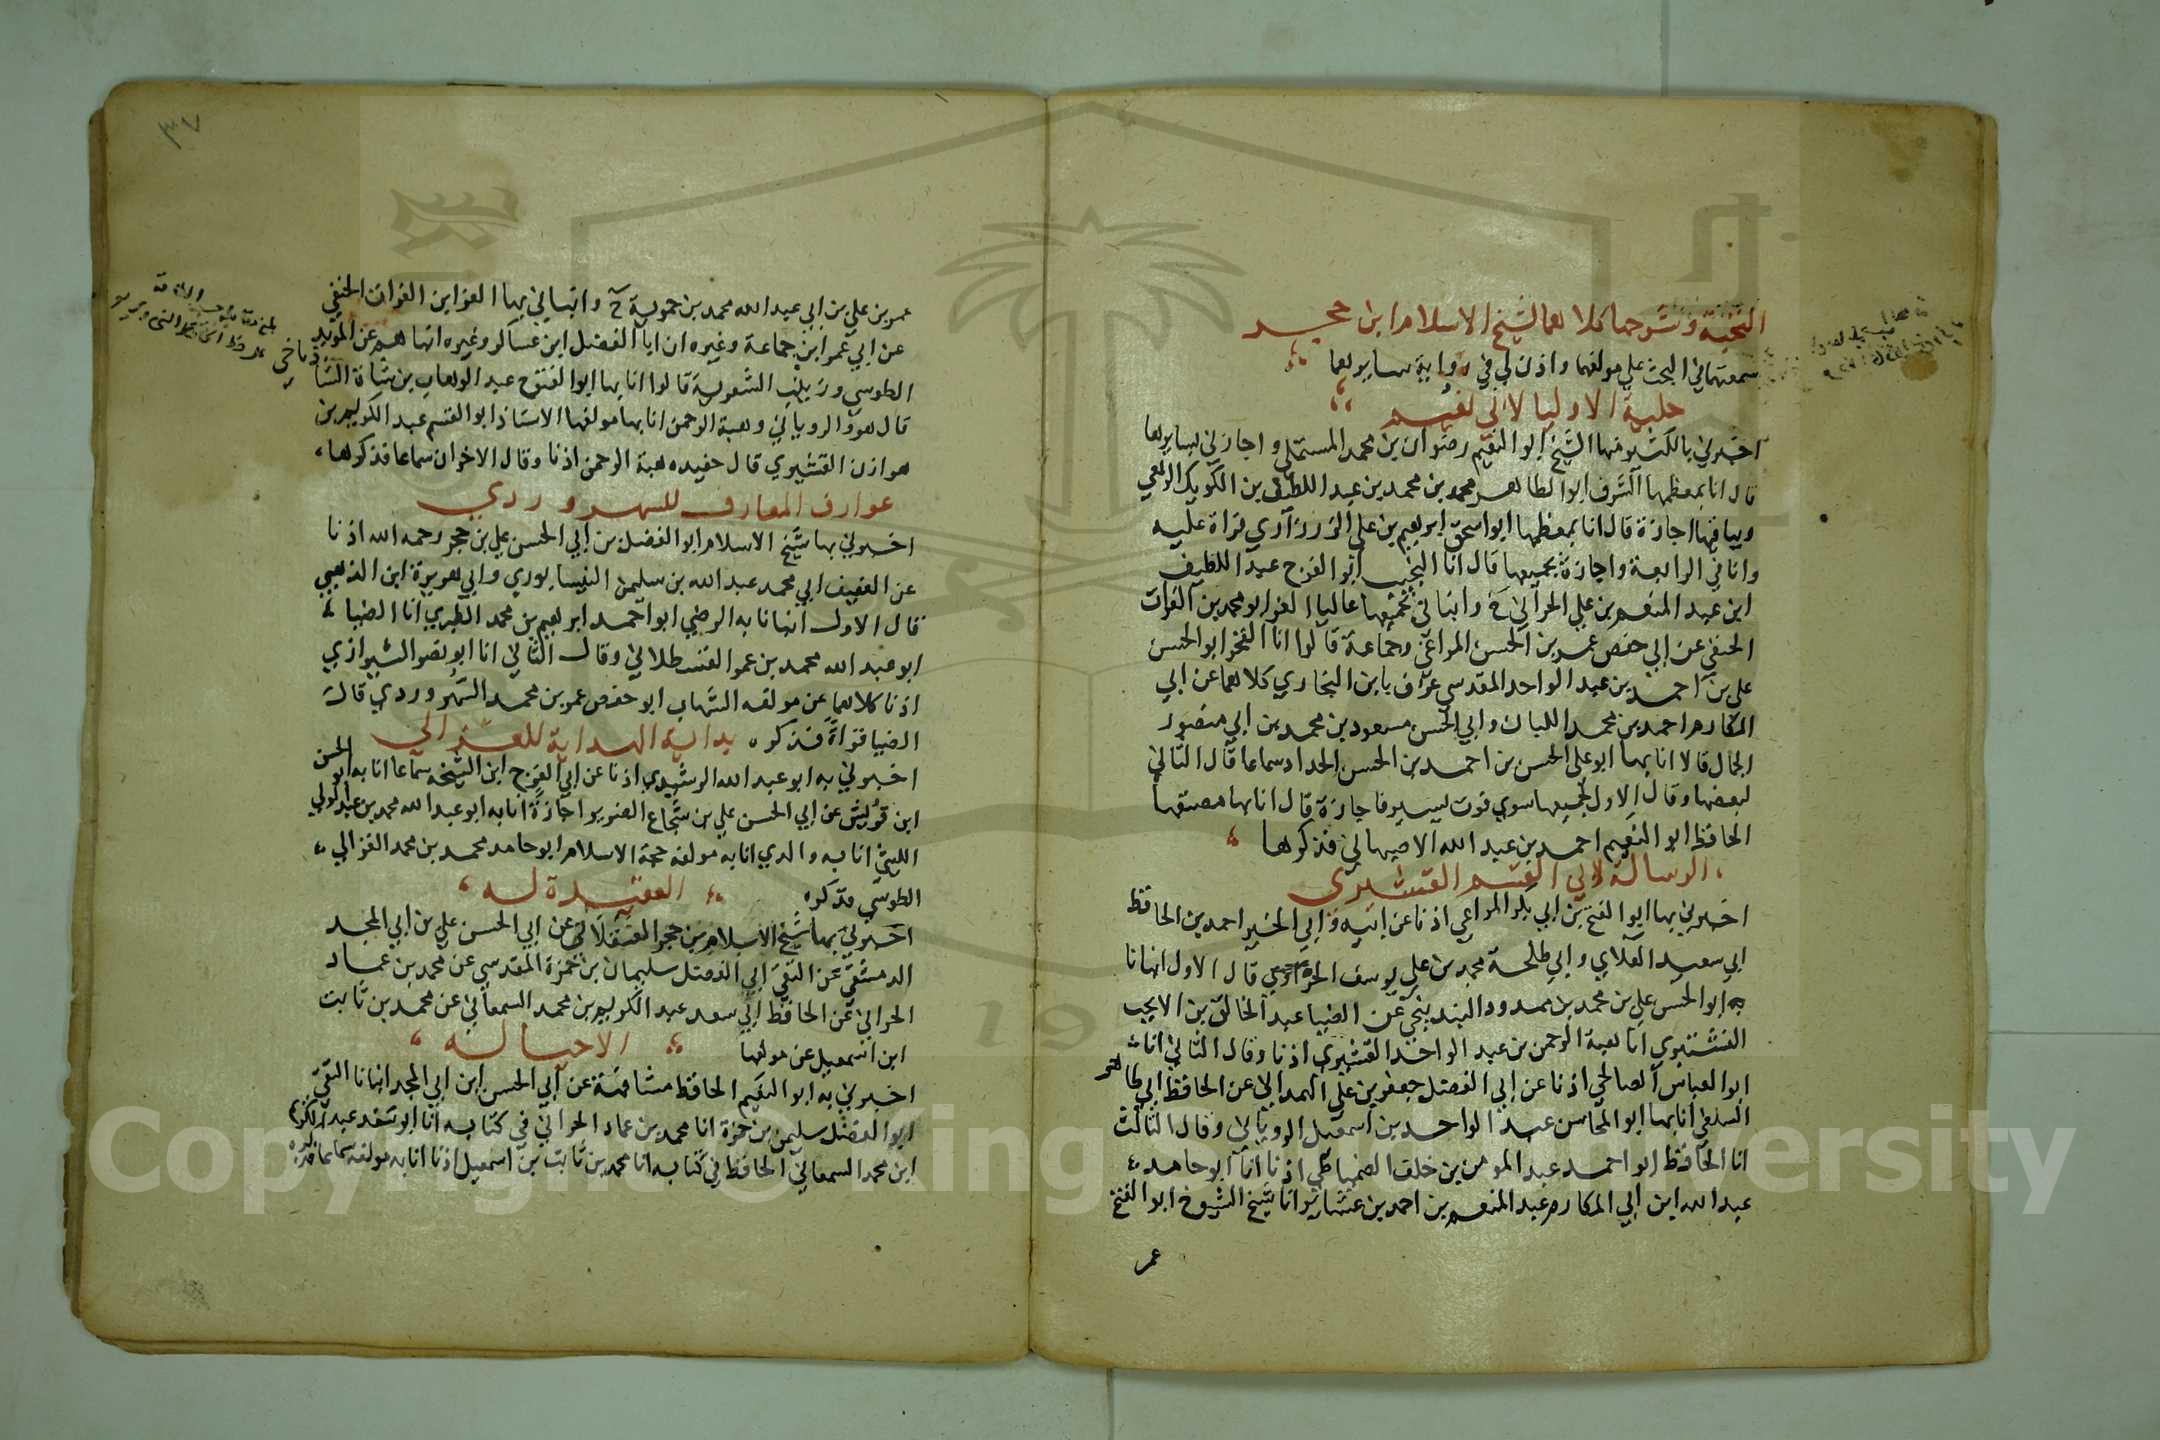 النخبة وشرحها كلاهما لشيخ الاسلام ابن حجر
سمعتهما في البحث علي مولفهما واذن لي في رواية سايرهما
حلية الاوليا لابي نعيم
اخبرني بالكثير منها الشيخ ابو النعيم رضوان بن محمد المستملي واجازني بسايرها
قال انا بمعظمها الشرف ابو الطاهر محمد بن محمد بن عبد اللطيف بن الكويك الربعي
وبباقيها اجازة قال انا بمعظمها ابو اسحق ابرهيم بن علي الزرزاري قراة عليه
وانا في الرابعة واجازة بجميعها قال انا النجيب ابو الفرج عبد اللطيف
ابن عبد المنعم بن علي الحراني ح وانباني بجميعها عاليا العز ابو محمد بن الفرات
الحنفي عن ابي حفص عمر بن الحسن المراغي وجماعة قالوا انا الفخر ابو الحسن
علي بن احمد بن عبد الواحد المقدسي عرف بابن البخاري كلاهما عن ابي
المكارم احمد بن محمد اللبان وابي الحسن مسعود بن محمد بن ابي منصور
الجمال قالا انا بها ابو علي الحسن بن احمد بن الحسن الحداد سماعا قال الثاني
لبعضها وقال الاول لجميعها سوي فوت يسير فاجازة قال انا بها مصنفها
الحافظ ابو النعيم احمد بن عبد الله الاصبهاني فذكرها
الرسالة لابي القسم القشيري
اخبرني بها ابو الفتح بن ابي بكر المراغي اذنا عن ابيه وابي الخير احمد بن الحافظ
ابي سعيد العلاي وابي طلحة محمد بن علي يوسف الحراوي قال الاول انبانا
به ابو الحسن علي بن محمد بن ممدود البندنيجي عن الضيا عبد الخالق بن الانجب
النشتبري انا هبة الرحمن بن عبد الواحد القشيري اذنا وقال الثاني انا
ابو العباس الصالحي اذنا عن ابي الفضل جعفر بن علي الهمداني عن الحافظ ابي طاهر
السلفي انا بها ابو المحاسن عبد الواحد بن اسمعيل الروياني وقال الثالث
انا الحافظ ابو احمد عبد المومن بن خلف الدمياطي اذنا انا ابو حامد
عبد الله ابن ابي المكارم عبد المنعم بن احمد بن عشاير انا شيخ الشيوخ ابو الفتح
عمر
٣٧
عمر بن علي بن ابي عبد الله محمد بن حموية ح وانباني بها العز ابن الفرات الحنفي
عن ابي عمر ابن جماعة وغيره ان ابا الفضل ابن عساكر وغيره انباهم عن المويد
الطوسي وزينب الشعرية قالوا انا بها ابو الفتوح عبد الوهاب بن شاة الشاذياخي
قال هو والروياني وهبة الرحمن انا بها مولفها الاستاذ ابو القسم عبد الكريم بن
هوازن القشيري قال حفيده هبة الرحمن اذنا وقال الاخران سماعا فذكرها
عوارف المعارف للسهروردي
اخبرني بها شيخ الاسلام ابو الفضل بن ابي الحسن علي بن حجر رحمه الله اذنا
عن العفيف ابي محمد عبد الله بن سليمن النيسابوري وابي هريرة ابن الذهبي
قال الاول انبانا به الرضي ابو احمد ابرهيم بن محمد الطبري انا الضيا
ابو عبد الله محمد بن عمر القسطلاني وقال الثاني انا ابو نصر الشيرازي
اذنا كلاهما عن مولفه الشهاب ابو حفص عمر بن محمد السهروردي قال
الضيا قراة فذكره بداية الهداية للغزالي
اخبرني به ابو عبد الله الرشيدي اذنا عن ابي الفرج ابن الشيخه سماعا انا به ابو الحسن
ابن قريش عن ابي الحسن علي بن شجاع الضرير اجازة انا به ابو عبد الله محمد بن عبد المولي
اللبني انا به والدي انا به مولفه حجة الاسلام ابو حامد محمد بن محمد الغزالي
الطوسي فذكره العقيدة له
اخبرني بها شيخ الاسلام بن حجر العسقلاني عن ابي الحسن علي بن ابي المجد
الدمشقي عن التقي ابي الفضل سليمان بن حمزة المقدسي عن محمد بن عماد
الحراني عن الحافظ ابي سعد عبد الكريم بن محمد السمعاني عن محمد بن ثابت
ابن اسمعيل عن مولفها الاحيا له
اخبرني به ابو النعيم الحافظ مشافهة عن ابي الحسن ابن ابي المجد انبانا التقي
ابو الفضل سليمن بن حمزة انا محمد بن عماد الحراني في كتابه انا ابو سعد عبد الكريم
ابن محمد السمعاني الحافظ في كتابه انا محمد بن ثابت بن اسمعيل اذنا انا به مولفه سماعا فذكره
Copyright © King Saud University